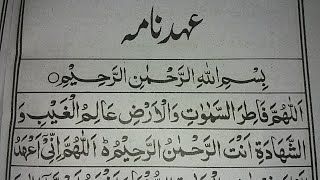 عہد نامہ
بِسْمِ اللّٰهِ الرَّحْمٰنِ الرَّحِيْمِ○
اَللّٰهُمَّ فَاطِرَ السَّمٰوٰتِ وَالْاَرْضِ عَالِمَ الْغَيْبِ وَ
الشَّهَادَةِ اَنْتَ الرَّحْمٰنُ الرَّحِيْمُ ط اَللّٰهُمَّ اِنِّيْٓ اَعْهَدُ